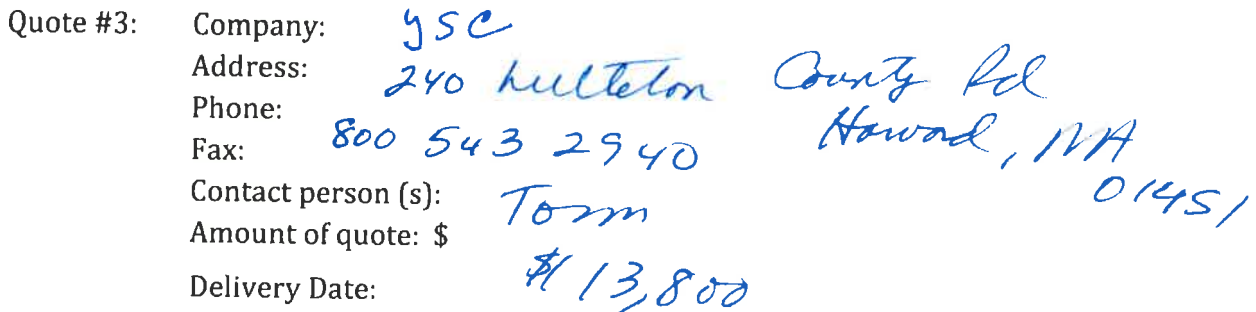 Quote #3: Company: YSC
Address: 240 Littleton County Rd
Phone: Harvard, MA
Fax: 800 543 2940 01451
Contact person (s): Tom
Amount of quote: $ $13,800
Delivery Date: